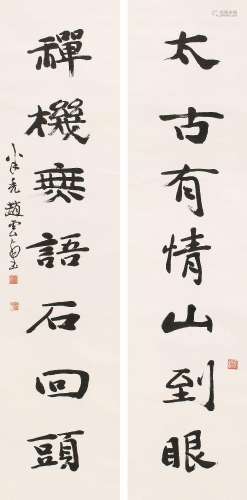 太古有情山到眼
禪機無語石回頭
趙雲壑